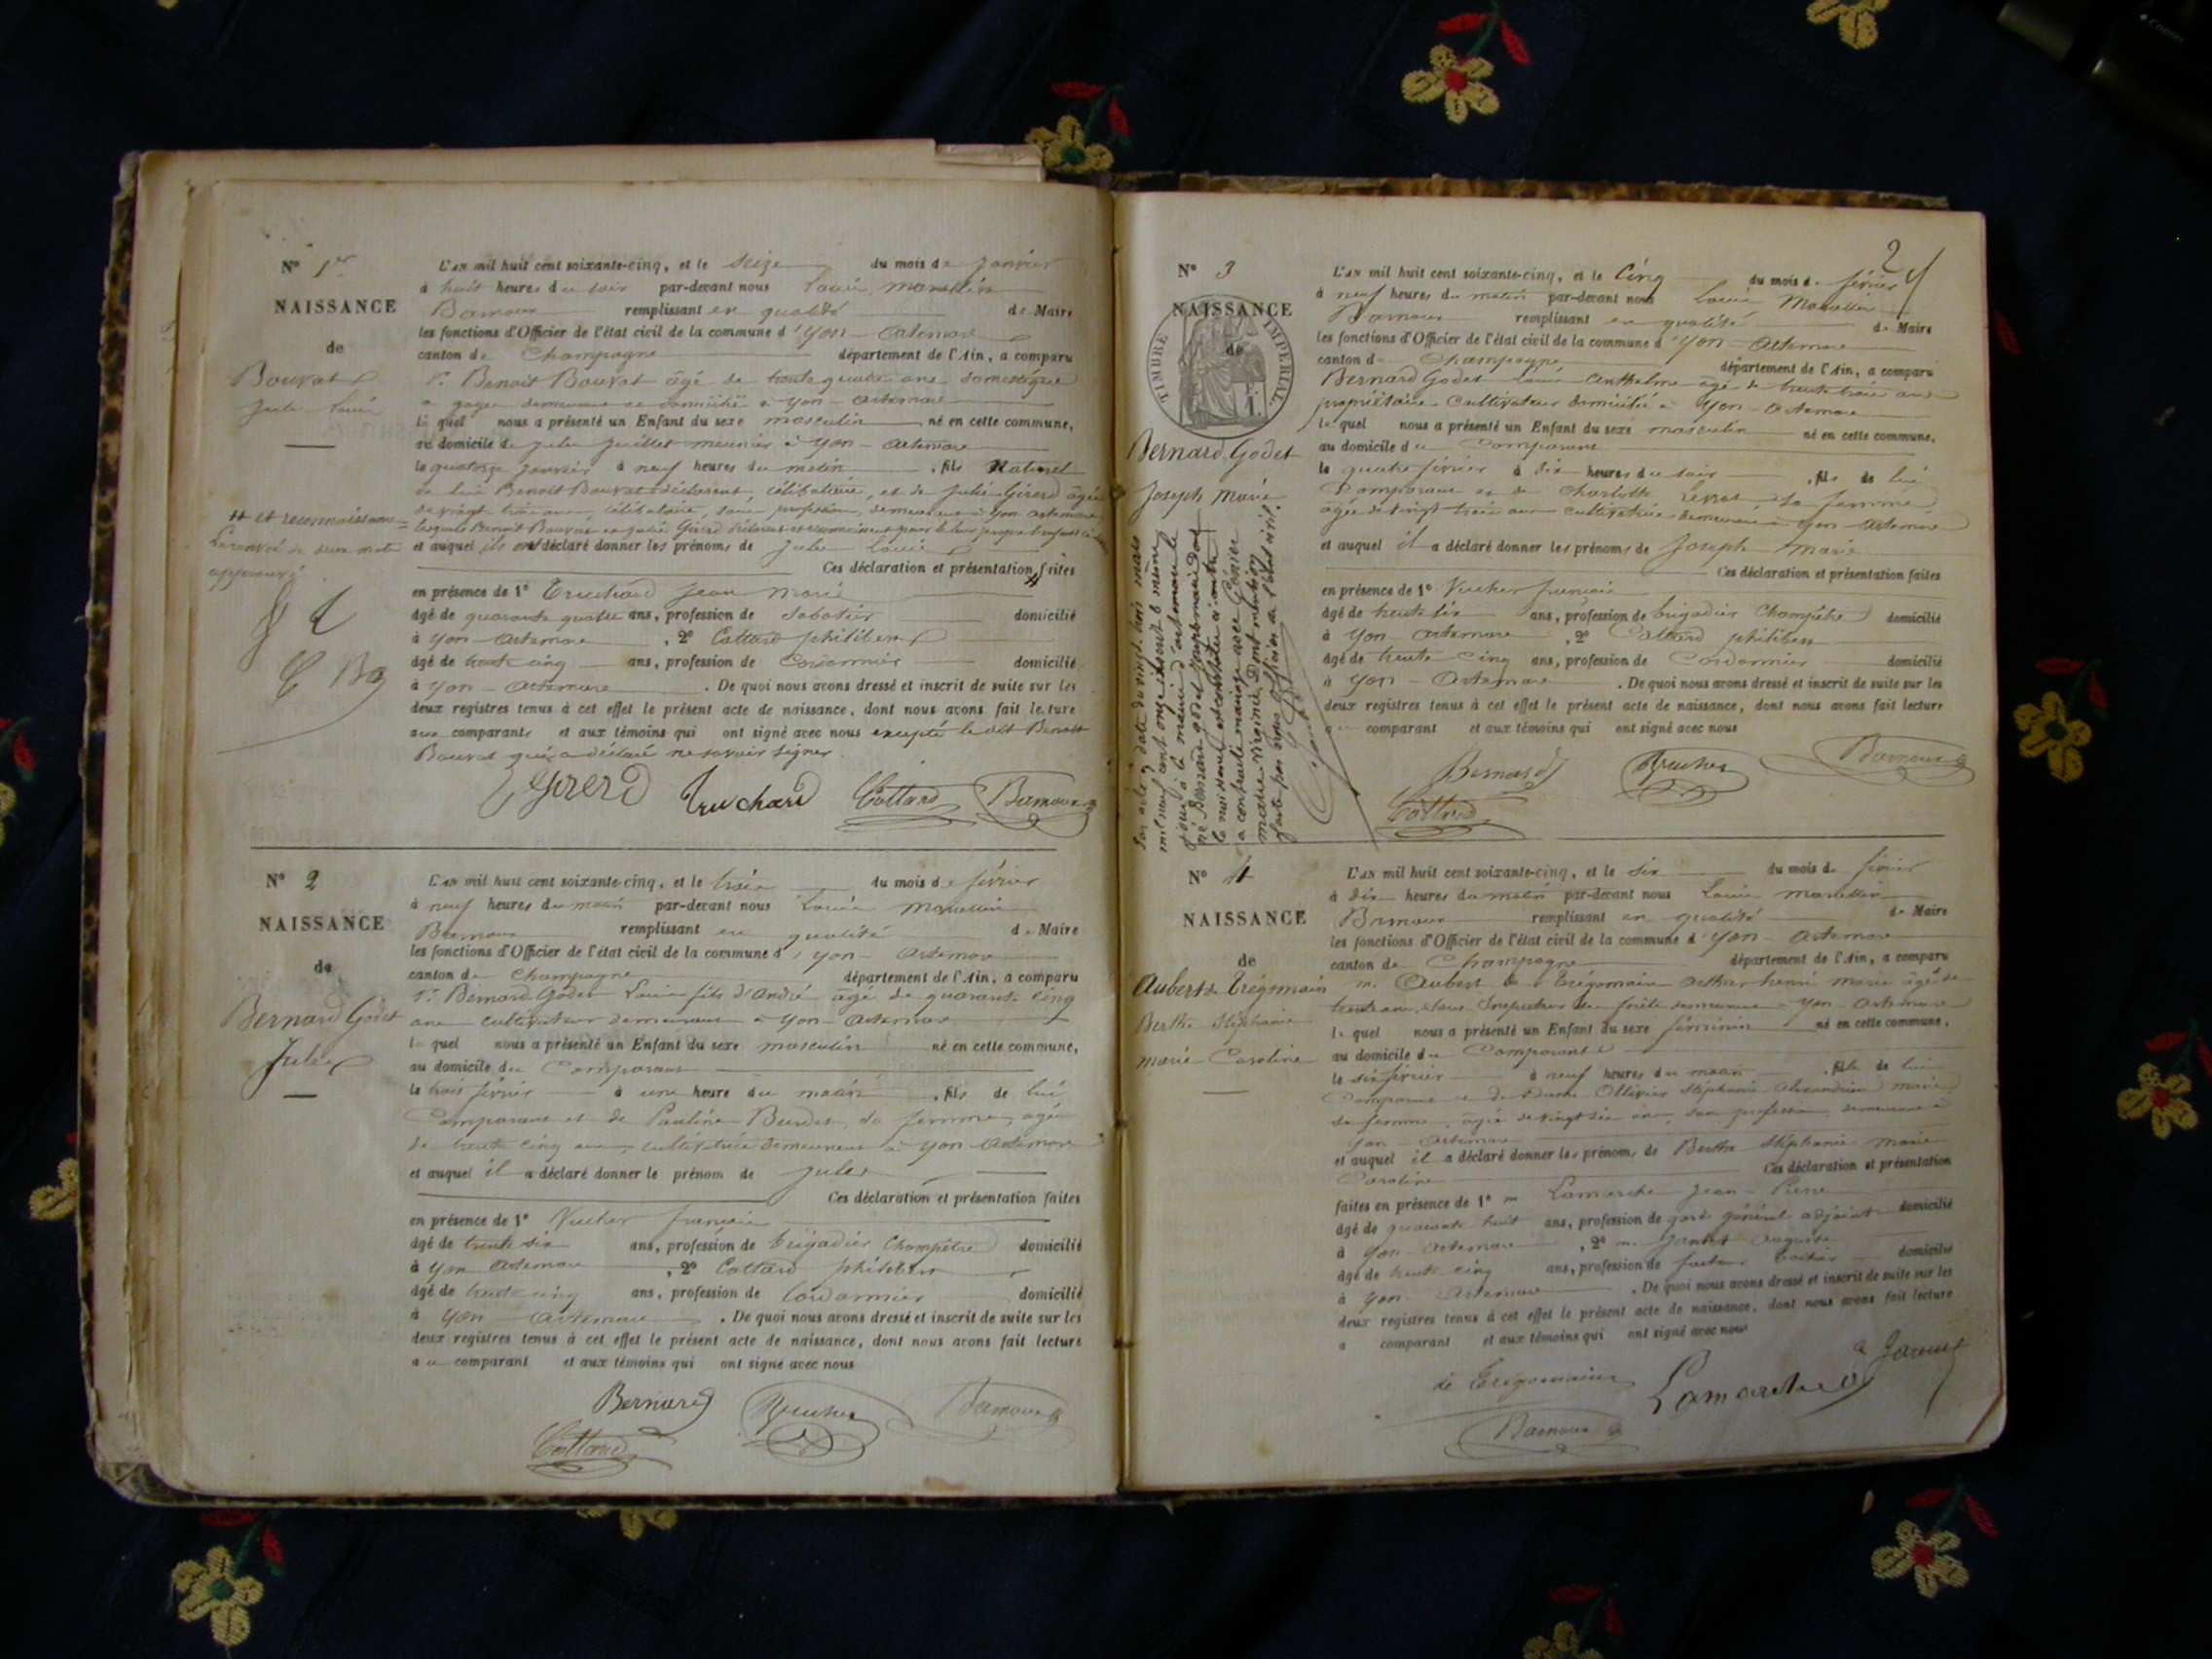 N° 1er
NAISSANCE
de
Bouvat
Jules Louis
L'an mil huit cent soixante-cinq, et le seize du mois de janvier
à huit heures du soir par-devant nous Louis Marcellin
remplissant en qualité de Maire
les fonctions d'Officier de l'état civil de la commune d'yon-artemare
canton de Champagne département de l'Ain, a comparu
Sr Benoit Bouvat âgé de trente quatre ans domestique
à gages à yon-artemare
le quel nous a présenté un Enfant du sexe masculin né en cette commune,
au domicile de Juillet meunier à yon-artemare
le quatorze janvier à neuf heures du matin, fils Naturel
de lui Benoit Bouvat déclarant, célibataire, et de Julie Girerd âgée
de vingt trois ans, célibataire, sans profession, demeurant à yon artemare
lesquels Benoit Bouvat et Julie Girerd
et auquel ils ont déclaré donner les prénoms de Jules Louis
Ces déclaration et présentation faites
++ et reconnaissance
approuvé
en présence de 1° Truchard Jean Marie
âgé de quarante quatre ans, profession de Sabotier domicilié
à yon-artemare, 2° Cottard philibert
âgé de trente cinq ans, profession de Cordonnier domicilié
à yon-artemare. De quoi nous avons dressé et inscrit de suite sur les
deux registres tenus à cet effet le présent acte de naissance, dont nous avons fait lecture
aux comparants et aux témoins qui ont signé avec nous excepté le dit Benoit
Bouvat qui a déclaré ne savoir signer.
Girerd Truchard Cottard
N° 2
NAISSANCE
de
Bernard Godet
Jules
L'an mil huit cent soixante-cinq, et le trois du mois de février
à neuf heures du matin par-devant nous Louis Marcellin
remplissant en qualité de Maire
les fonctions d'Officier de l'état civil de la commune d'yon-artemare
canton de Champagne département de l'Ain, a comparu
Sr Bernard Godet Louis fils d'André âgé de quarante cinq
ans cultivateur demeurant à yon-artemare
le quel nous a présenté un Enfant du sexe masculin né en cette commune,
au domicile du Comparant
le trois février à une heure du matin, fils de lui
Comparant et de Pauline Burdet sa femme, agée
de trente cinq ans, cultivatrice demeurant à yon-artemare
et auquel il a déclaré donner le prénom de Jules
Ces déclaration et présentation faites
en présence de 1° Vucher françois
âgé de trente six ans, profession de brigadier Champêtre domicilié
à yon artemare, 2° Cottard philibert
âgé de trente cinq ans, profession de Cordonnier domicilié
à yon-artemare. De quoi nous avons dressé et inscrit de suite sur les
deux registres tenus à cet effet le présent acte de naissance, dont nous avons fait lecture
au comparant et aux témoins qui ont signé avec nous
Bernard Vucher
Cottard
2
N° 3
NAISSANCE
de
TIMBRE IMPERIAL
Bernard Godet
Joseph Marie
L'an mil huit cent soixante-cinq, et le Cinq du mois de février
à neuf heures du matin par-devant nous Louis Marcellin
remplissant en qualité de Maire
les fonctions d'Officier de l'état civil de la commune d'yon-artemare
canton de Champagne département de l'Ain, a comparu
Bernard Godet Louis Anthelme âgé de trente trois ans
propriétaire Cultivateur domicilié à yon-artemare
le quel nous a présenté un Enfant du sexe masculin né en cette commune,
au domicile du Comparant
le quatre février à dix heures du soir, fils de lui
Comparant et de Charlotte sa femme,
agée de vingt trois ans cultivatrice demeurant à yon-artemare
et auquel il a déclaré donner les prénoms de Joseph Marie
Ces déclaration et présentation faites
en présence de 1° Vucher françois
âgé de trente six ans, profession de brigadier Champêtre domicilié
à yon artemare, 2° Cottard philibert
âgé de trente cinq ans, profession de Cordonnier domicilié
à yon-artemare. De quoi nous avons dressé et inscrit de suite sur les
deux registres tenus à cet effet le présent acte de naissance, dont nous avons fait lecture
au comparant et aux témoins qui ont signé avec nous
Bernard Vucher
Cottard
Par acte à date du vingt trois mars
mil neuf cent onze inscrit le même
jour à la mairie d'artemare le
né Bernard Godet
la naissance est constatée ci contre
a contracté mariage avec
Marie Virginie. Dont mention
faite par nous officier de l'état civil.
N° 4
NAISSANCE
de
Aubert Trégomain
Berthe Stéphanie
Marie Caroline
L'an mil huit cent soixante-cinq, et le six du mois de février
à dix heures du matin par-devant nous Louis Marcellin
remplissant en qualité de Maire
les fonctions d'Officier de l'état civil de la commune d'yon-artemare
canton de Champagne département de l'Ain, a comparu
m. Aubert de Trégomain Arthur henri marie âgé de
trente ans, Sous Inspecteur des forêts demeurant à yon artemare
le quel nous a présenté un Enfant du sexe féminin né en cette commune,
au domicile du Comparant
le six février à neuf heures du matin, fille de lui
Comparant et de Dame Ollivier Stéphanie Alexandrine marie
sa femme, agée de vingt six ans, sans profession, demeurant à
yon-artemare
et auquel il a déclaré donner les prénoms de Berthe Stéphanie Marie
Caroline Ces déclaration et présentation
faites en présence de 1° m Lamarche Jean Pierre
âgé de quarante huit ans, profession de garde général adjoint domicilié
à yon artemare, 2° m. Auguste
âgé de trente cinq ans, profession de facteur boitier domicilié
à yon artemare. De quoi nous avons dressé et inscrit de suite sur les
deux registres tenus à cet effet le présent acte de naissance, dont nous avons fait lecture
a comparant et aux témoins qui ont signé avec nous
de Trégomain Lamarche